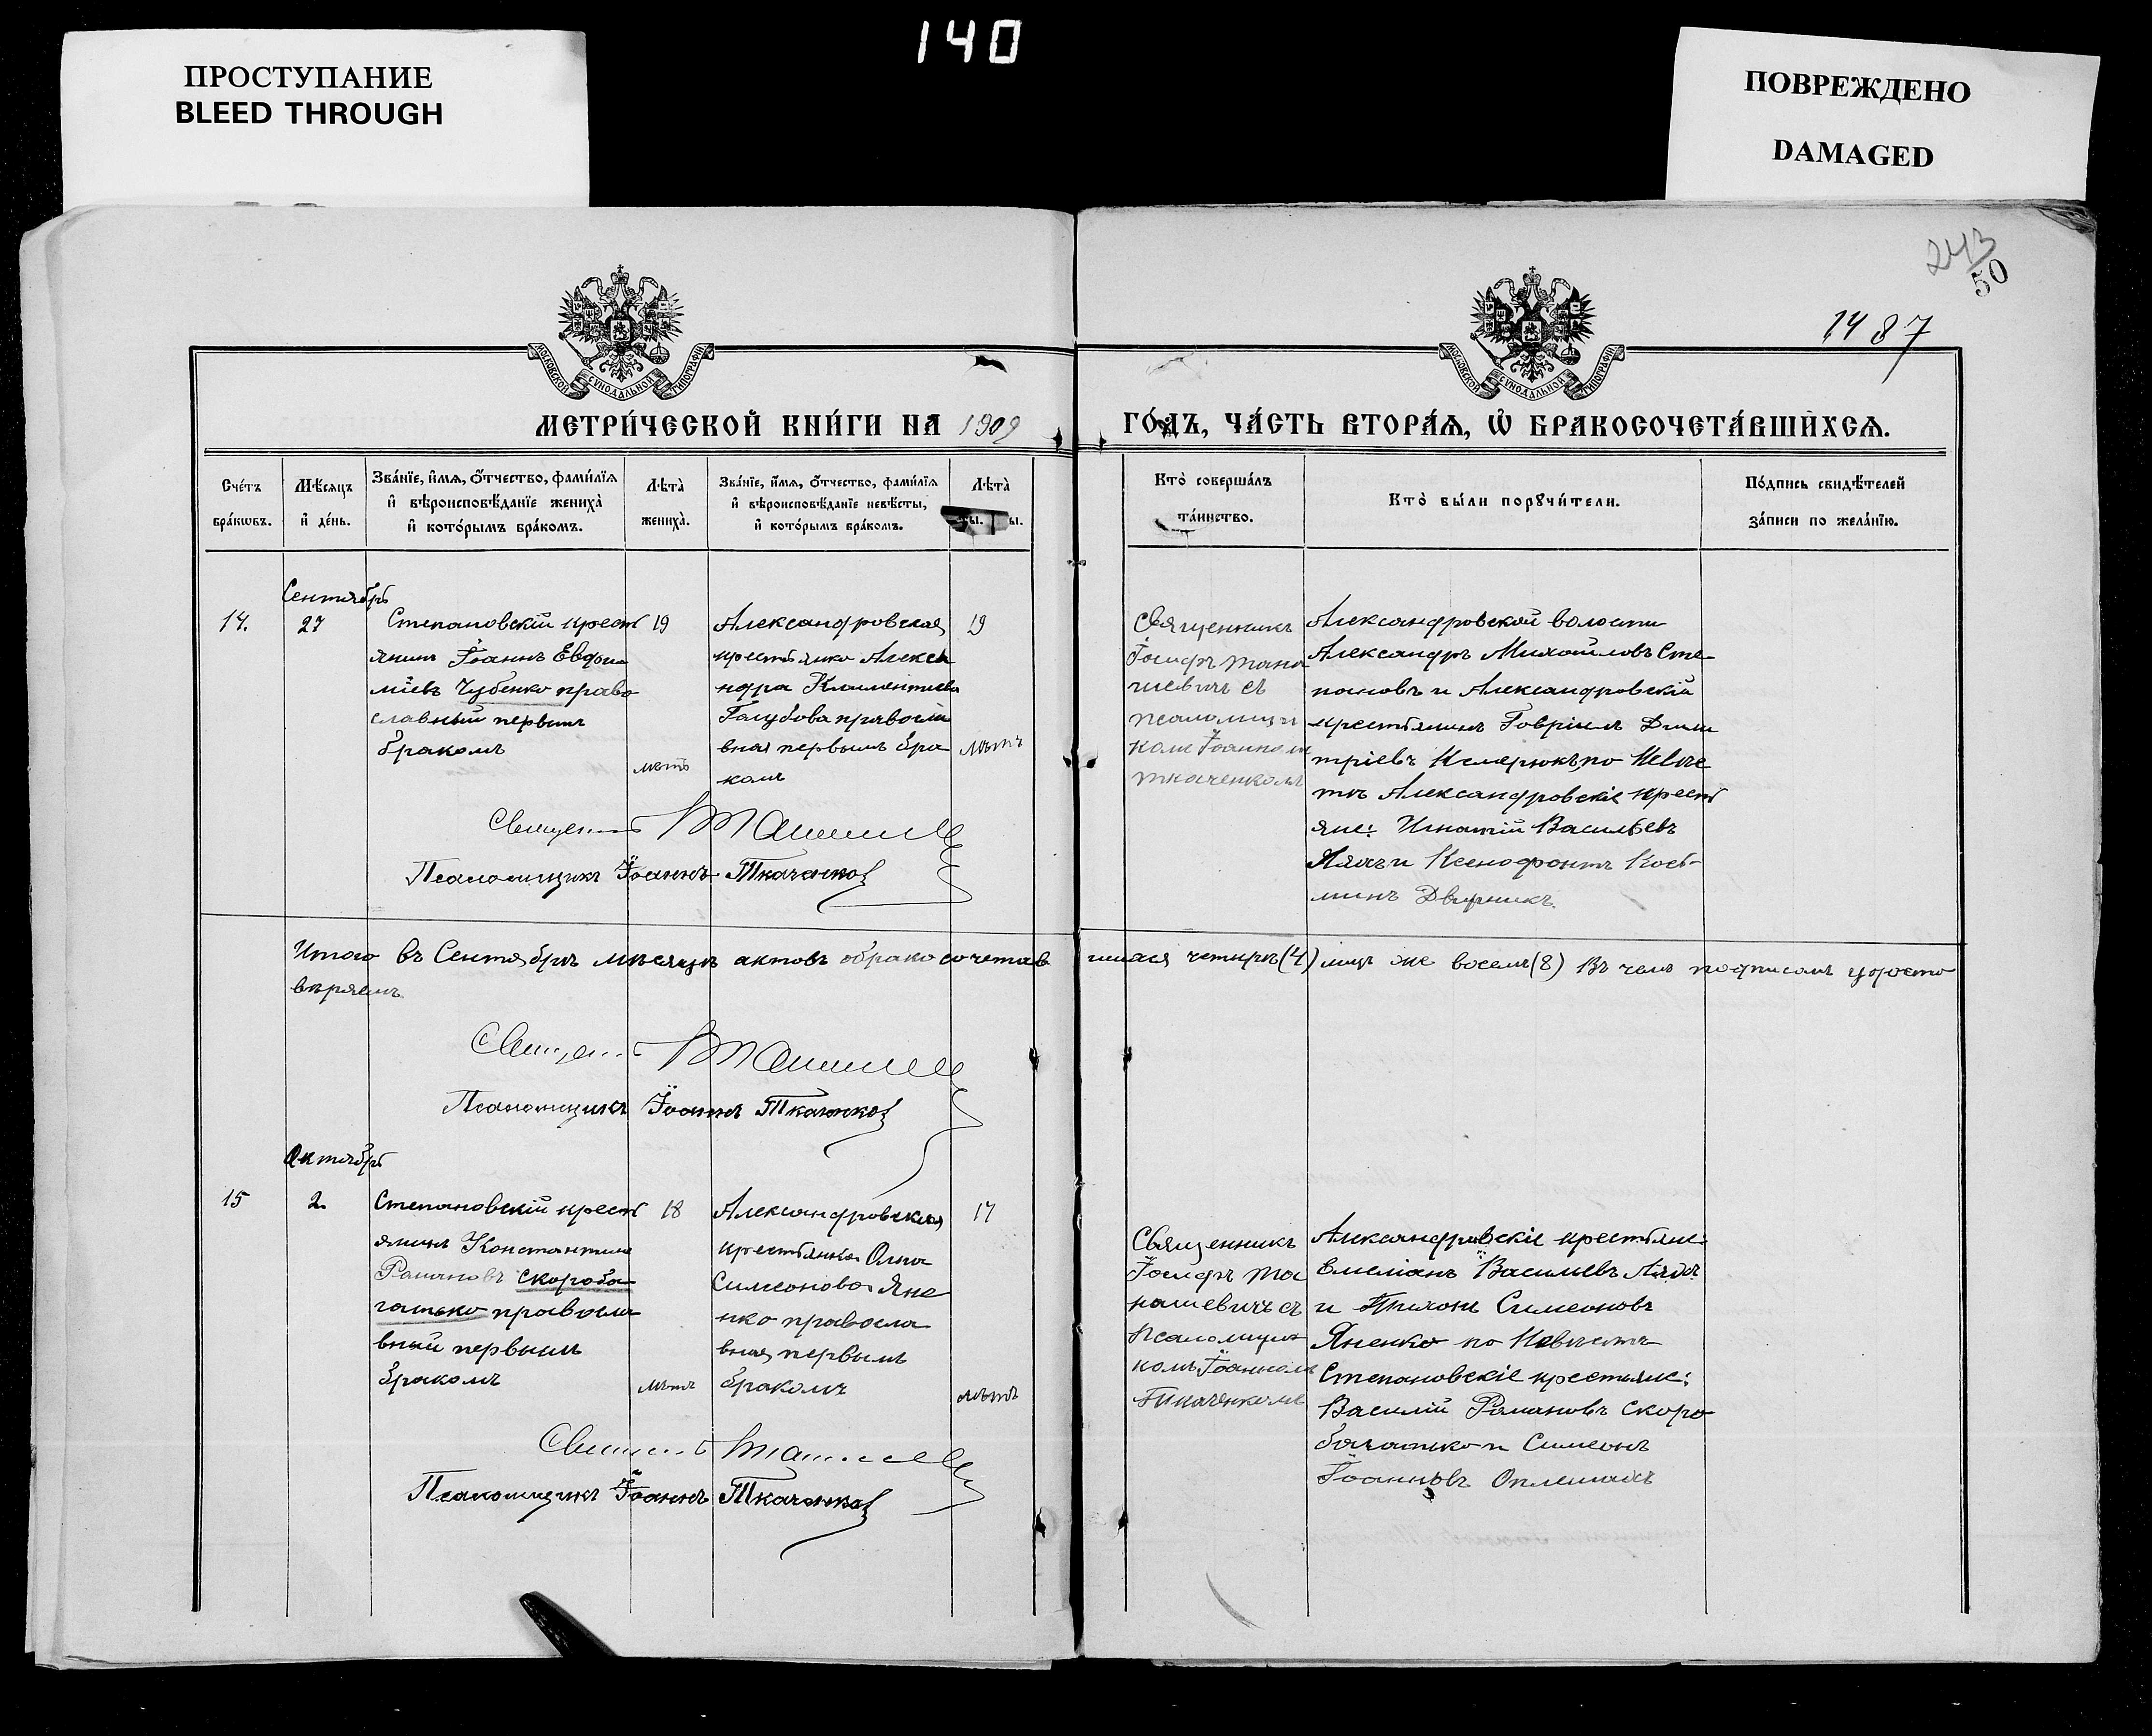 140
ПРОСТУПАНИЕ
BLEED THROUGH
ПОВРЕЖДЕНО
DAMAGED
243
50
1487
МОСКОВСКОЙ СѴНОДАЛЬНОЙ ТИПОГРАФІИ
МОСКОВСКОЙ СѴНОДАЛЬНОЙ ТИПОГРАФІИ
МЕТРИ́ЧЕСКОЙ КНИ́ГИ НА 1909 ГО́ДЪ, ЧА́СТЬ ВТОРА́Ѧ, Ѡ҆ БРАКОСОЧЕТА́ВШИХСѦ.
Сче́тъ
бра́кѡвъ.
Мѣ́сяцъ
и҆ де́нь.
Зва́нїе, и҆́мя, ѻ҆́тчество, фами́лїя
и҆ вѣроисповѣ́данїе жениха̀
и҆ кото́рымъ бра́комъ.
Лѣта̀
жениха̀.
Зва́нїе, и҆́мя, ѻ҆́тчество, фами́лїя
и҆ вѣроисповѣ́данїе невѣ́сты,
и҆ кото́рымъ бра́комъ.
Лѣта̀
Кто̀ соверша́лъ
та́инство.
Кто̀ бы́ли порꙋчи́тели.
По́дпись свидѣ́телей
за́писи по жела́нїю.
Сентябрь
14.
27
Степановскій крестъ
янинъ Іоаннъ Евфи
міевъ Чубенко право
славный первымъ
бракомъ
19
лѣтъ
Александровская
крестьянка Алекса
ндра Климентіева
Голубова правосла
вная первымъ бра
комъ
19
лѣтъ
Священникъ
Іосифъ Тана
шевичъ съ
псаломщи
комъ Іоанномъ
Ткаченкомъ
Александровской волости
Александръ Михайловъ Сте
пановъ и Александровскій
крестьянинъ Гавріилъ Дими
тріевъ по Невѣ
стѣ Александровскіе крест
яне: Игнатій Васильевъ
Ляхъ и Ксенофонтъ Косъ
минъ Дворникъ.
Священникъ
Псаломщикъ Іоаннъ Ткаченко
Итого въ Сентябрѣ мѣсяцѣ актовъ бракосочетав шихся четыре (4) лицъ же восемь (8) Въ чемъ подписомъ удосто
вѣряемъ.
Священникъ
Псаломщикъ Іоаннъ Ткаченко
Октябрь
15
2.
Степановскій крестъ
янинъ Константинъ
Романовъ Скороба
гатько правосла
вный первымъ
бракомъ
18
лѣтъ
Александровская
крестьянка Анна
Симеонова Яне
нко правосла
вная первымъ
бракомъ
17
лѣтъ
Священникъ
Іосифъ Та
нашевичъ съ
псаломщи
комъ Іоанномъ
Ткаченкомъ
Александровскіе крестьяне:
Емеліанъ Васильевъ Ляхъ
и Тихонъ Симеоновъ
Яненко по Невѣстѣ
Степановскіе крестьяне:
Василій Романовъ Скоро
багатько и Симеонъ
Іоанновъ
Священникъ
Псаломщикъ Іоаннъ Ткаченко